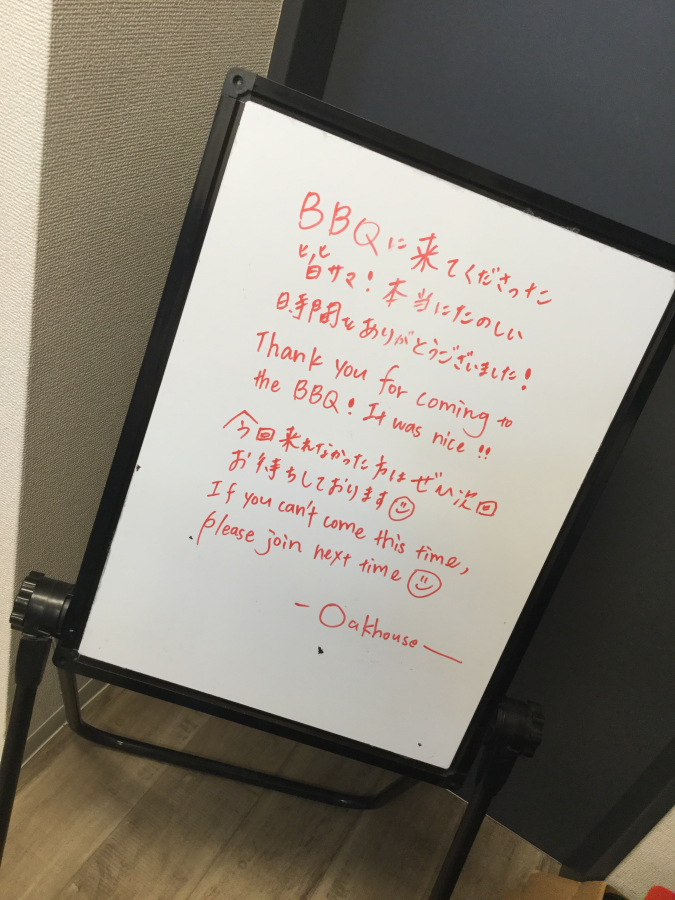 BBQに来てくださった
皆サマ!本当にたのしい
時間をありがとうございました!
Thank you for coming to
the BBQ! It was nice!!
今回来れなかった方はぜひ次回
お待ちしております☺
If you can't come this time,
please join next time ☺
- Oakhouse -